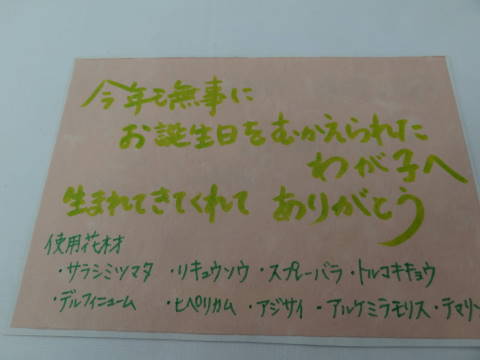 今年も無事に
お誕生日をむかえられた
わが子へ
生まれてきてくれて ありがとう
使用花材
・サラシミツマタ ・リキュウソウ ・スプレーバラ ・トルコキキョウ
・デルフィニューム ・ヒペリカム ・アジサイ ・アルケミラモリス ・テマリ